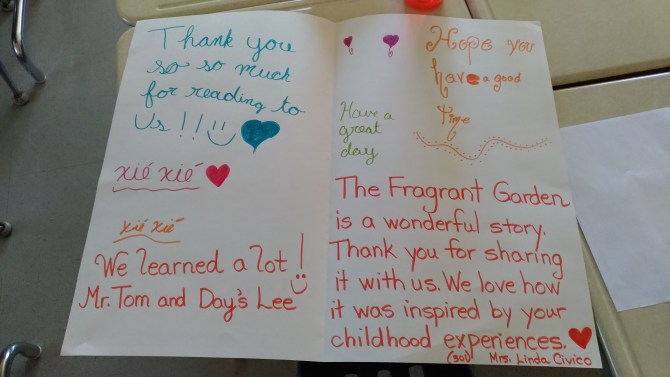 Thank you
so so much
for reading to
Us!!
xié xié
xié xié
We learned a lot!
Mr. Tom and Day's Lee
Hope you
have a good
time
Have a
great
day
The Fragrant Garden
is a wonderful story.
Thank you for sharing
it with us. We love how
it was inspired by your
childhood experiences.
(301) Mrs. Linda Civico